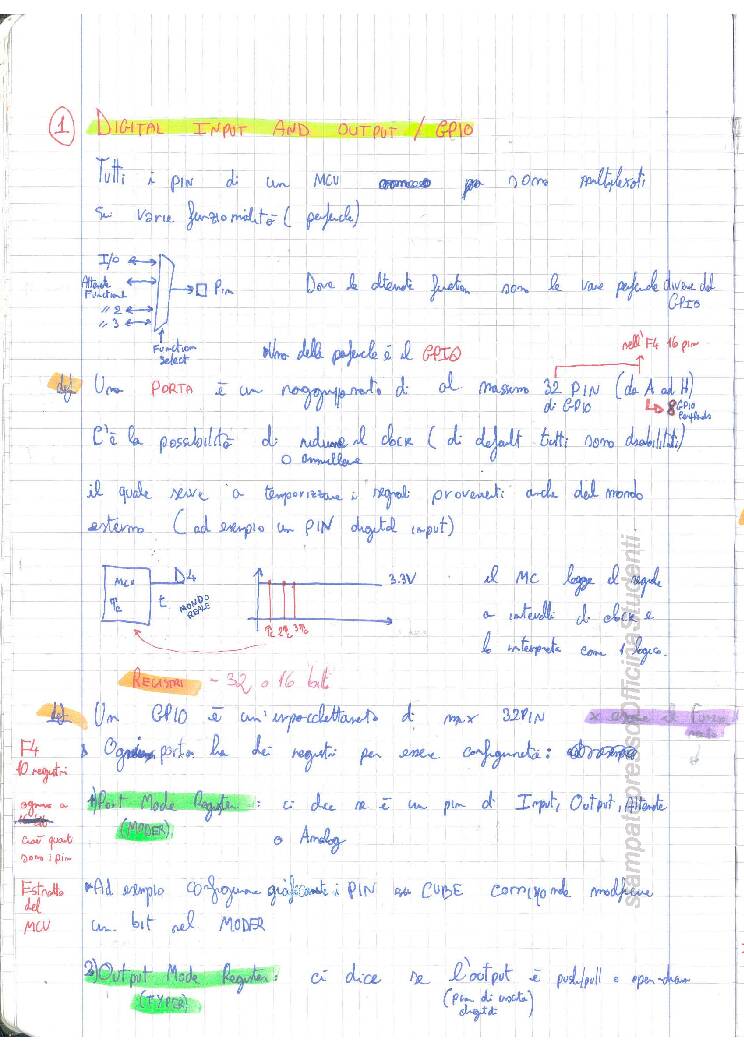 1 DIGITAL INPUT AND OUTPUT / GPIO
Tutti i PIN di un MCU sono multiplexati
su varie funzionalità (periferiche)
I/O
Alternate Functional
" 2
" 3
Pin
Function Select
Dove le alternate function sono le varie periferiche diverse dal GPIO
Una delle periferiche è il GPIO
nell'F4 16 pin
def Una PORTA è un raggruppamento di al massimo 32 PIN (da A ad H)
di GPIO
8 GPIO
C'è la possibilità di ridurre il clock (di default tutti sono disabilitati)
o annullare
il quale serve a temporizzare i segnali provenienti anche dal mondo
esterno (ad esempio un PIN digital input)
MCU
D4
Tc
t
MONDO REALE
3.3V
Tc 2Tc 3Tc
il MC legge il segnale
a intervalli di clock e
lo interpreta come 1 logico.
REGISTRI - 32 o 16 bit
def Un GPIO è un'impacchettamento di max 32 PIN
x essere il
F4
10 registri
ognuno a
cioè quanti
sono i pin
Ogni porta ha dei registri per essere configurata:
1) Port Mode Register: ci dice se è un pin di Input, Output, Alternate
(MODER)
o Analog
Estratto
del
MCU
*Ad esempio configurare graficamente i PIN su CUBE corrisponde modificare
un bit nel MODER
2) Output Mode Register: ci dice se l'output è push/pull o open-drain
(TYPER)
(pin di uscita)
digital
stampatopressoOfficinaStudenti